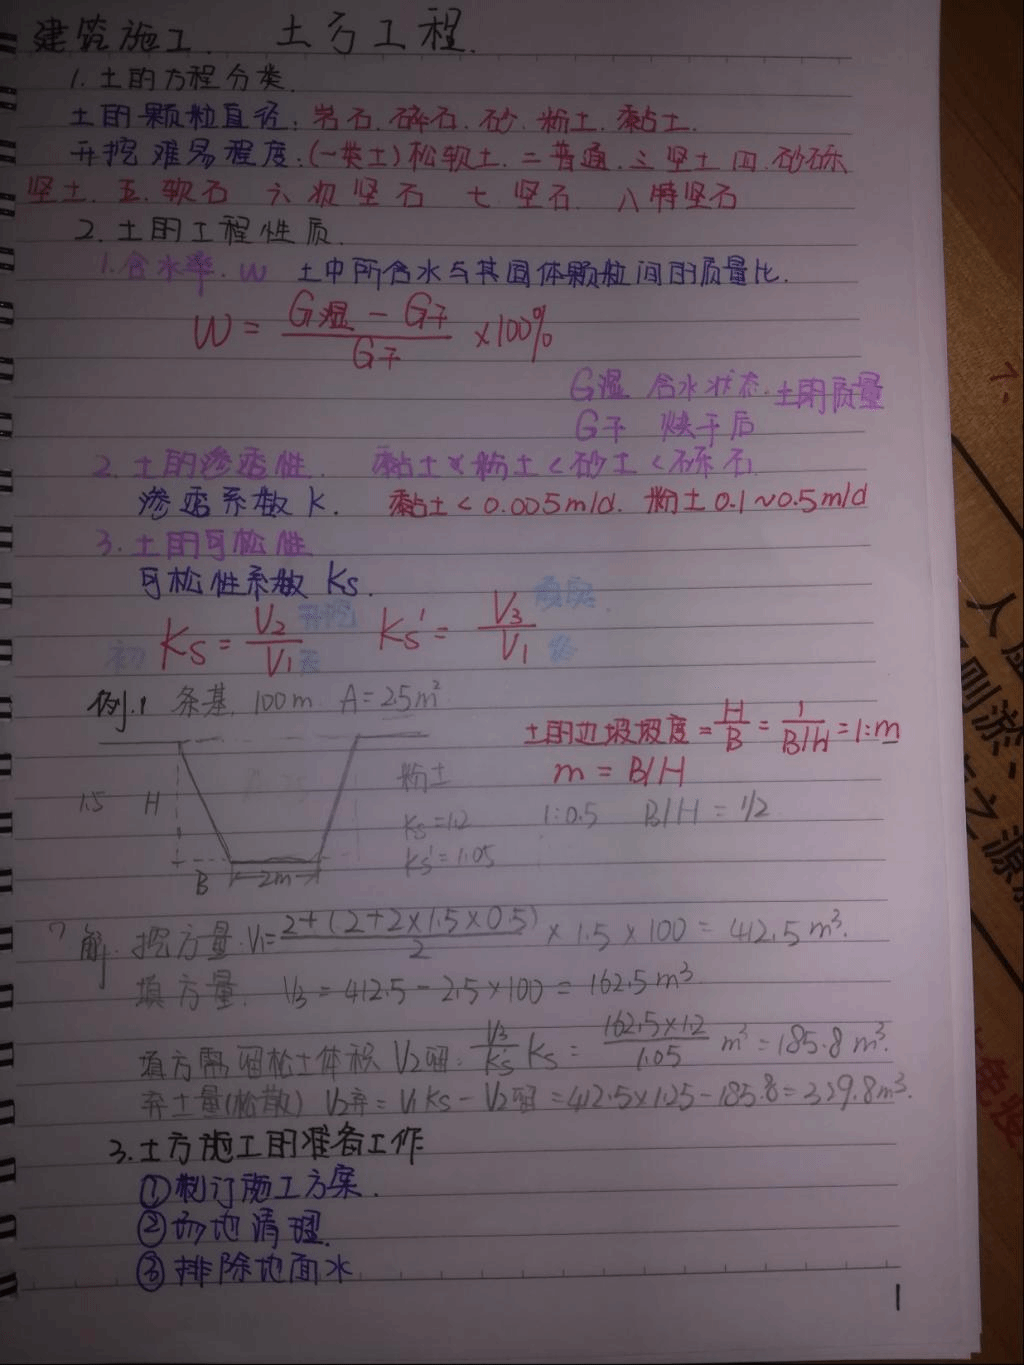 建筑施工. 土方工程.
1. 土的方程分类.
土的颗粒直径: 岩石. 碎石. 砂. 粉土. 黏土.
开挖难易程度: (一类土) 松软土. 二普通. 三坚土 四. 砂砾
坚土. 五. 软石 六次坚石 七. 坚石. 八特坚石
2. 土的工程性质.
1. 含水率. W 土中所含水与其固体颗粒间的质量比.
W = (G湿 - G干)/G干 ×100%
G湿 含水状态. 土的质量
G干 烘干后
2. 土的渗透性. 黏土<粉土<砂土<砾石.
渗透系数 K. 黏土<0.005m/d. 粉土0.1~0.5m/d
3. 土的可松性
可松性系数 Ks.
初 Ks = V2/V1 开挖 天 Ks' = V3/V1
例.1 条基. 100m. A=2.5m²
土的边坡坡度 = H/B = 1/(B/H) = 1:m
m = B/H
粉土
1.5 H Ks=1.2 1:0.5 B/H = 1/2
Ks'=1.05
B 2m
解. 挖方量. V1= (2+(2+2×1.5×0.5))/2 ×1.5×100 = 412.5m³.
填方量. V3 = 412.5-2.5×100 = 162.5m³
填方需留松土体积 V2留. V3/Ks' Ks = (162.5×1.2)/1.05 m³ = 185.8m³.
弃土量(松散) V2弃 = V1Ks - V2留 = 412.5×1.25-185.8 = 329.8m³.
3. 土方施工的准备工作
① 制订施工方案.
② 场地清理.
③ 排除地面水
1